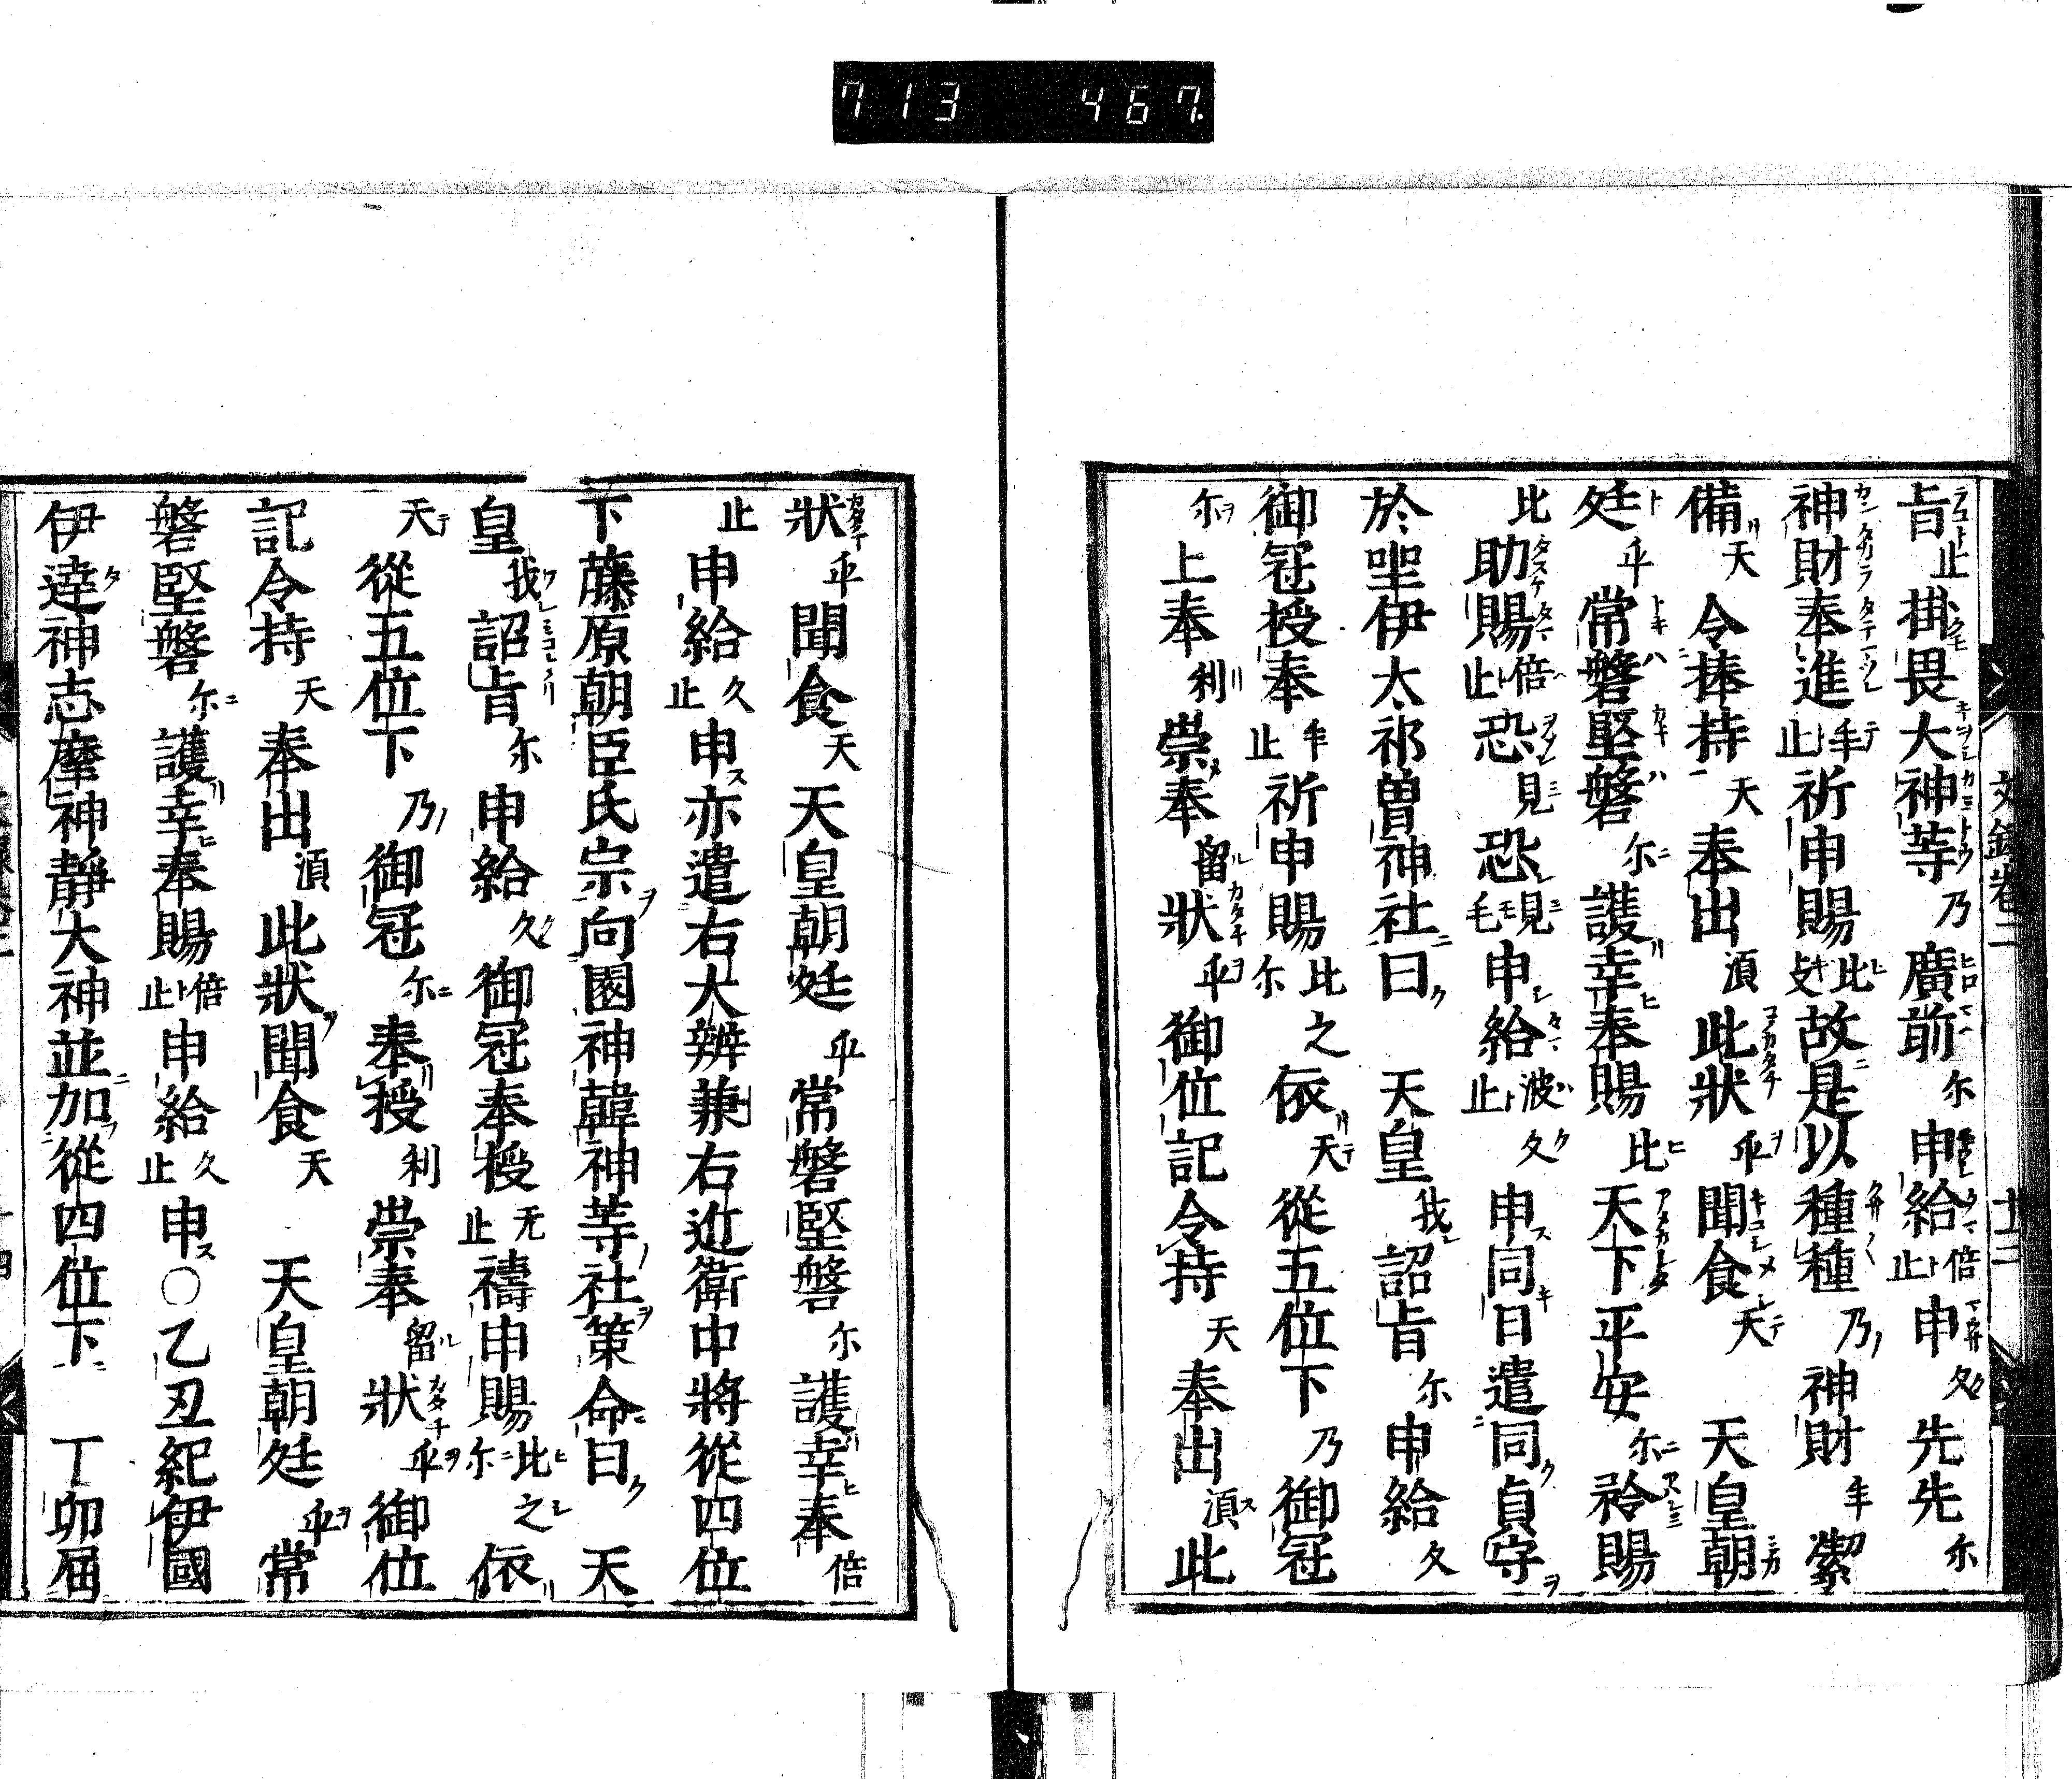 713 467
文錄卷二 十三
旨止掛畏大神等乃廣前尓申給倍止申久先先尓
神財奉進牟止祈申賜比支故是以種種乃神財乎潔
備天令捧持天奉出湏此狀乎聞食天 天皇朝
廷乎常磐堅磐尓護幸奉賜比天下平安尓矜賜
比助賜倍止恐見恐見毛申給波久止申同日遣同貞守
於聖伊太祁曽神社曰 天皇我詔旨尓申給久
御冠授奉牟止祈申賜比尓之依天從五位下乃御冠
尓上奉利崇奉留狀乎御位記令持天奉出湏此
狀乎聞食天天皇朝廷乎常磐堅磐尓護幸奉倍
止申給久止申亦遣右大辨兼右近衛中將從四位
下藤原朝臣氏宗向園神韓神等社策命曰 天
皇我詔旨尓申給久御冠奉授无止禱申賜比尓之依
天從五位下乃御冠尓奉授利崇奉留狀乎御位
記令持天奉出湏此狀聞食天 天皇朝廷乎常
磐堅磐尓護幸奉賜倍止申給久止申〇乙丑紀伊國
伊達神志摩神靜大神並加從四位下 丁卯屈